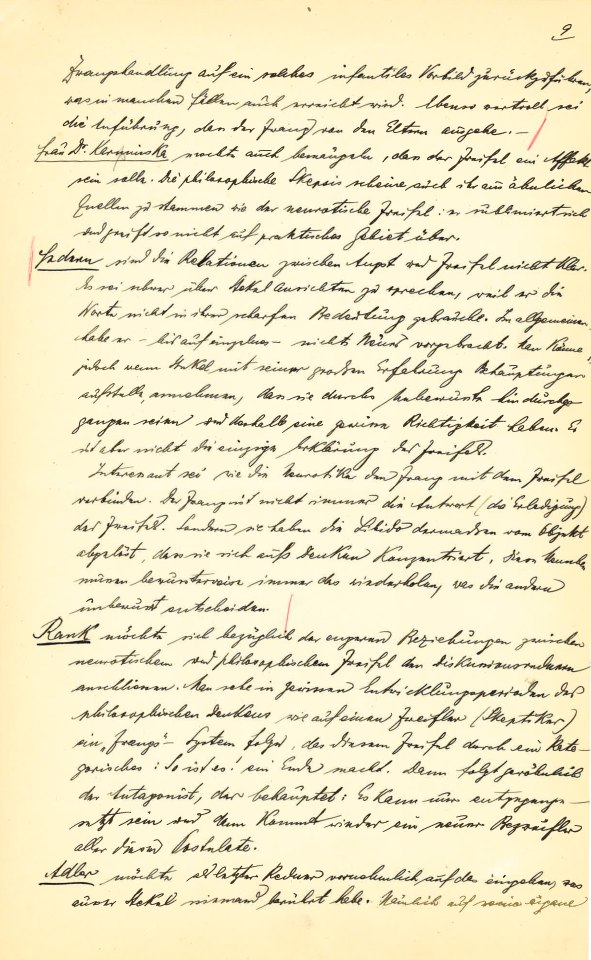 9
Zwangshandlung auf ein solches infantiles Vorbild zurückzuführen,
was in manchen Fällen auch erreicht wird. Ebenso wertvoll sei
die Anführung, dass der Zwang von den Eltern ausgehe. –
Frau Dr. möchte auch bemängeln, dass der Zweifel ein Affekt
sein solle. Die philosophische Skepsis scheine auch ihr aus ähnlichen
Quellen zu stammen wie der neurotische Zweifel: er sublimiert sich
und greift so nicht auf praktisches Gebiet über.
Federn sind die Relationen zwischen Angst und Zweifel nicht klar.
Es sei schwer über Stekels Ansichten zu sprechen, weil er die
Worte nicht in ihrer scharfen Bedeutung gebrauche. Im allgemeinen
habe er – bis auf einzelnes – nichts Neues vorgebracht. Man könne
jedoch wenn Stekel mit seiner großen Erfahrung Behauptungen
aufstelle, annehmen, dass sie durchs Unbewusste hindurchge-
gangen seien und deshalb eine gewisse Richtigkeit haben. Es
ist aber nicht die einzige Erklärung des Zweifels.
Interessant sei wie die Neurotika den Zwang mit dem Zweifel
verbinden. Der Zwang ist nicht immer die Antwort (die Erledigung)
des Zweifels. Sondern sie haben die Libido dermassen vom Objekt
abgelöst, dass sie sich aufs Denken konzentriert. Diese Menschen
müssen bewussterweise immer das wiederholen, was die andern
unbewusst entscheiden.
Rank möchte sich bezüglich der engeren Beziehungen zwischen
neurotischem und philosophischem Zweifel den
anschliessen. Man sehe in gewissen Entwicklungsperioden des
philosophischen Denkens wie auf einen Zweifler (Skeptiker)
ein „Zwangs“-System folgt, das diesem Zweifel durch ein kate-
gorisches: So ist es! ein Ende macht. Dann folgt gewöhnlich
der Antagonist, der behauptet: Es kann nur entgegenge-
setzt sein und dann kommt wieder ein neuer
aller dieser Postulate.
Adler möchte als letzter Redner vornehmlich auf das eingehen, was
ausser Stekel niemand berührt habe. Nämlich auf seine eigene